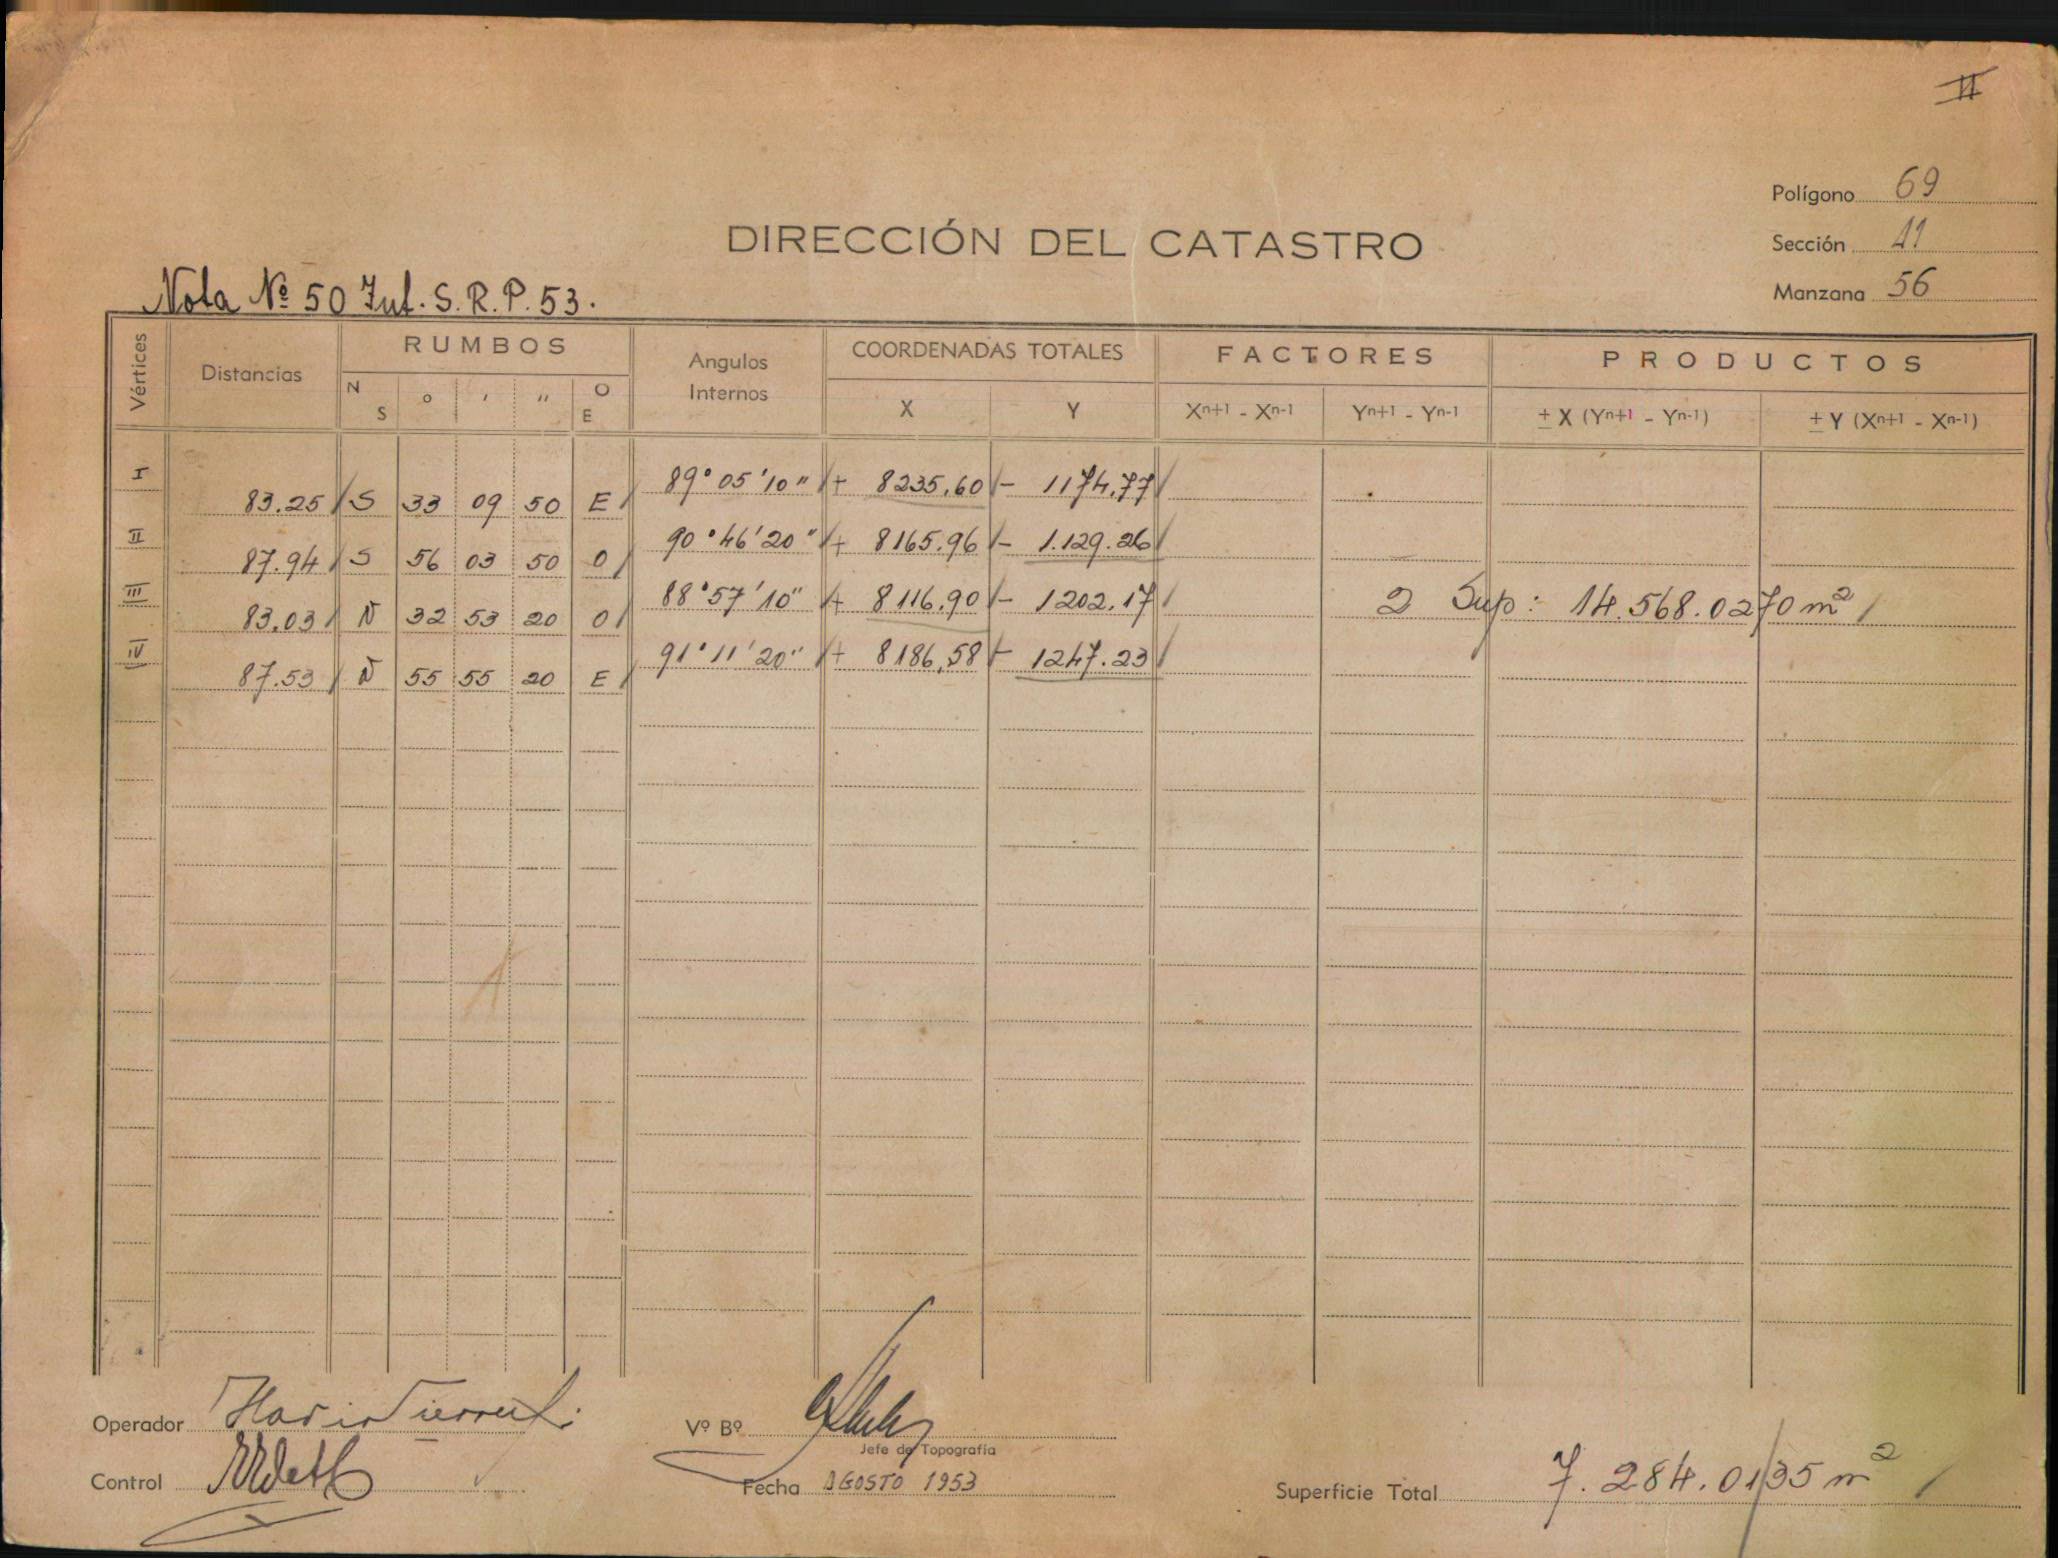 II
Polígono 69
DIRECCIÓN DEL CATASTRO
Sección 11
Manzana 56
Nota Nº 50 Jul. S.R.P. 53.
Vértices Distancias RUMBOS Angulos Internos COORDENADAS TOTALES FACTORES PRODUCTOS
N S o ' " O E X Y Xn+1 - Xn-1 Yn+1 - Yn-1 ± X (Yn+1 - Yn-1) ± Y (Xn+1 - Xn-1)
I 83.25 S 33 09 50 E 89° 05' 10" + 8235.60 - 1174.77
II 87.94 S 56 03 50 O 90° 46' 20" + 8165.96 - 1.129.26
III 83.03 N 32 53 20 O 88° 57' 10" + 8116.90 - 1202.17 2 Sup: 14.568.0270 m²
IV 87.53 N 55 55 20 E 91° 11' 20" + 8186.58 - 1247.23
Operador
Vº Bº
Jefe de Topografía
Control
Fecha AGOSTO 1953
Superficie Total 7.284.0135 m²